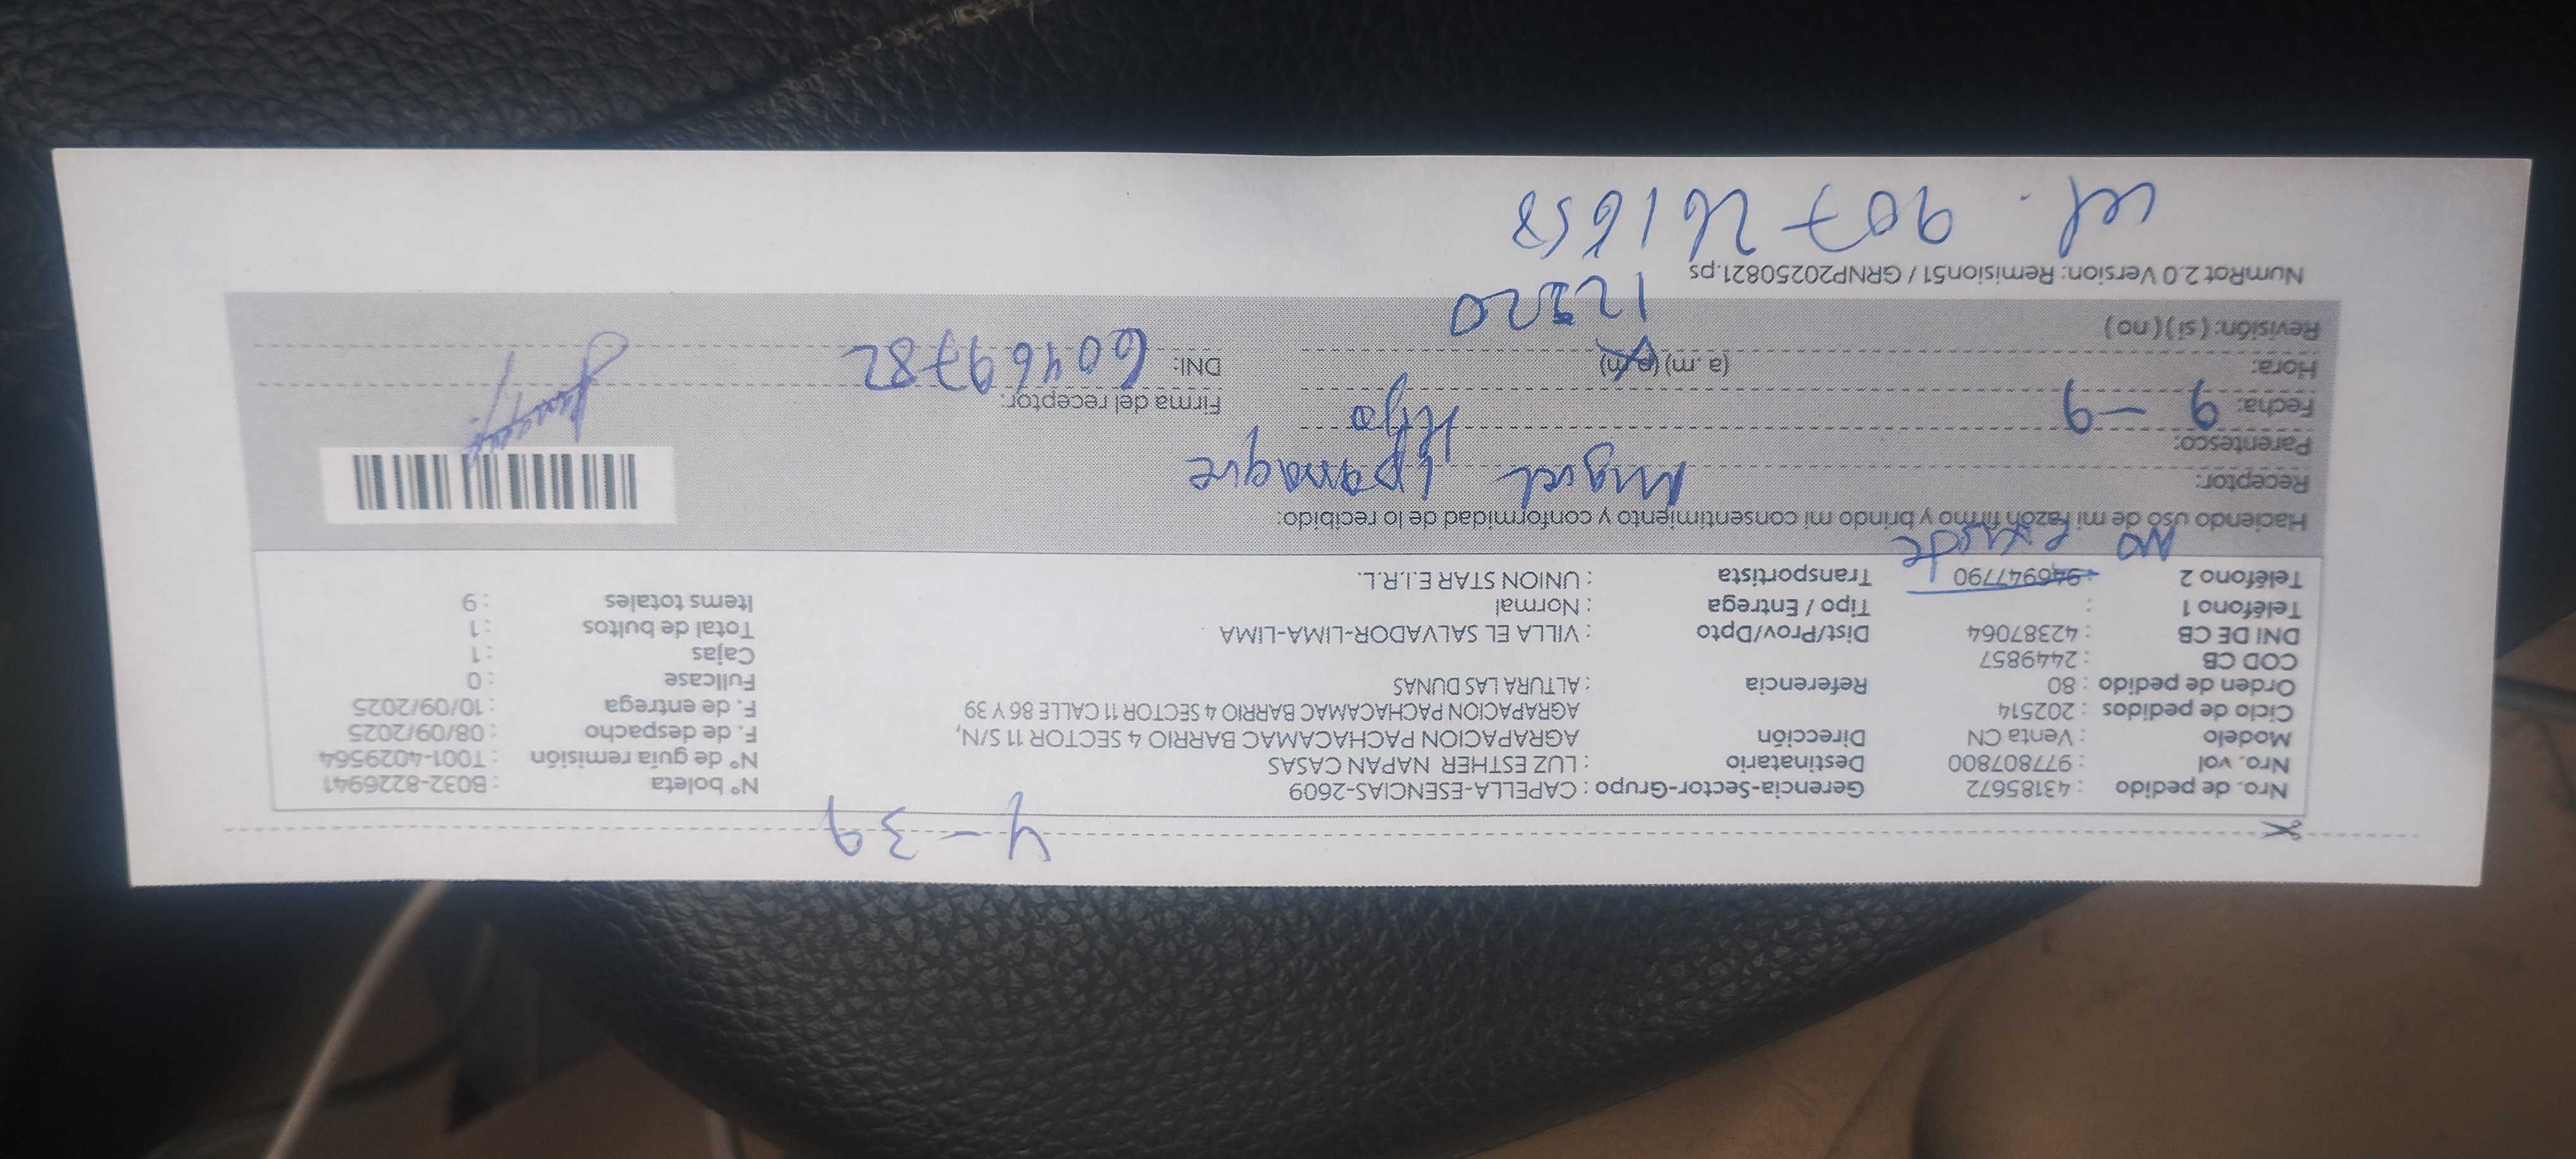 4-39
Nro. de pedido : 43185672 Gerencia-Sector-Grupo : CAPELLA-ESENCIAS-2609 N° boleta : B032-8226941
Nro. vol : 977807800 Destinatario : LUZ ESTHER NAPAN CASAS N° de guía remisión : T001-4029564
Modelo : Venta CN Dirección AGRAPACION PACHACAMAC BARRIO 4 SECTOR 11 S/N, F. de despacho : 08/09/2025
Ciclo de pedidos : 202514 AGRAPACION PACHACAMAC BARRIO 4 SECTOR 11 CALLE 86 Y 39 F. de entrega : 10/09/2025
Orden de pedido : 80 Referencia : ALTURA LAS DUNAS Fullcase : 0
COD CB : 2449857 Cajas : 1
DNI DE CB : 42387064 Dist/Prov/Dpto : VILLA EL SALVADOR-LIMA-LIMA Total de bultos : 1
Teléfono 1 : Tipo / Entrega : Normal Items totales : 9
Teléfono 2 : 946947790 Transportista : UNION STAR E.I.R.L.
NO existe
Haciendo uso de mi razón firmo y brindo mi consentimiento y conformidad de lo recibido:
Receptor: Miguel Ipanaque
Parentesco: Hijo
Fecha: 9-9 Firma del receptor:
Hora: (a.m) (p.m) DNI: 60469782
Revisión: (si) (no)
NumRot 2.0 Version: Remision51 / GRNP20250821.ps
cel. 907261658